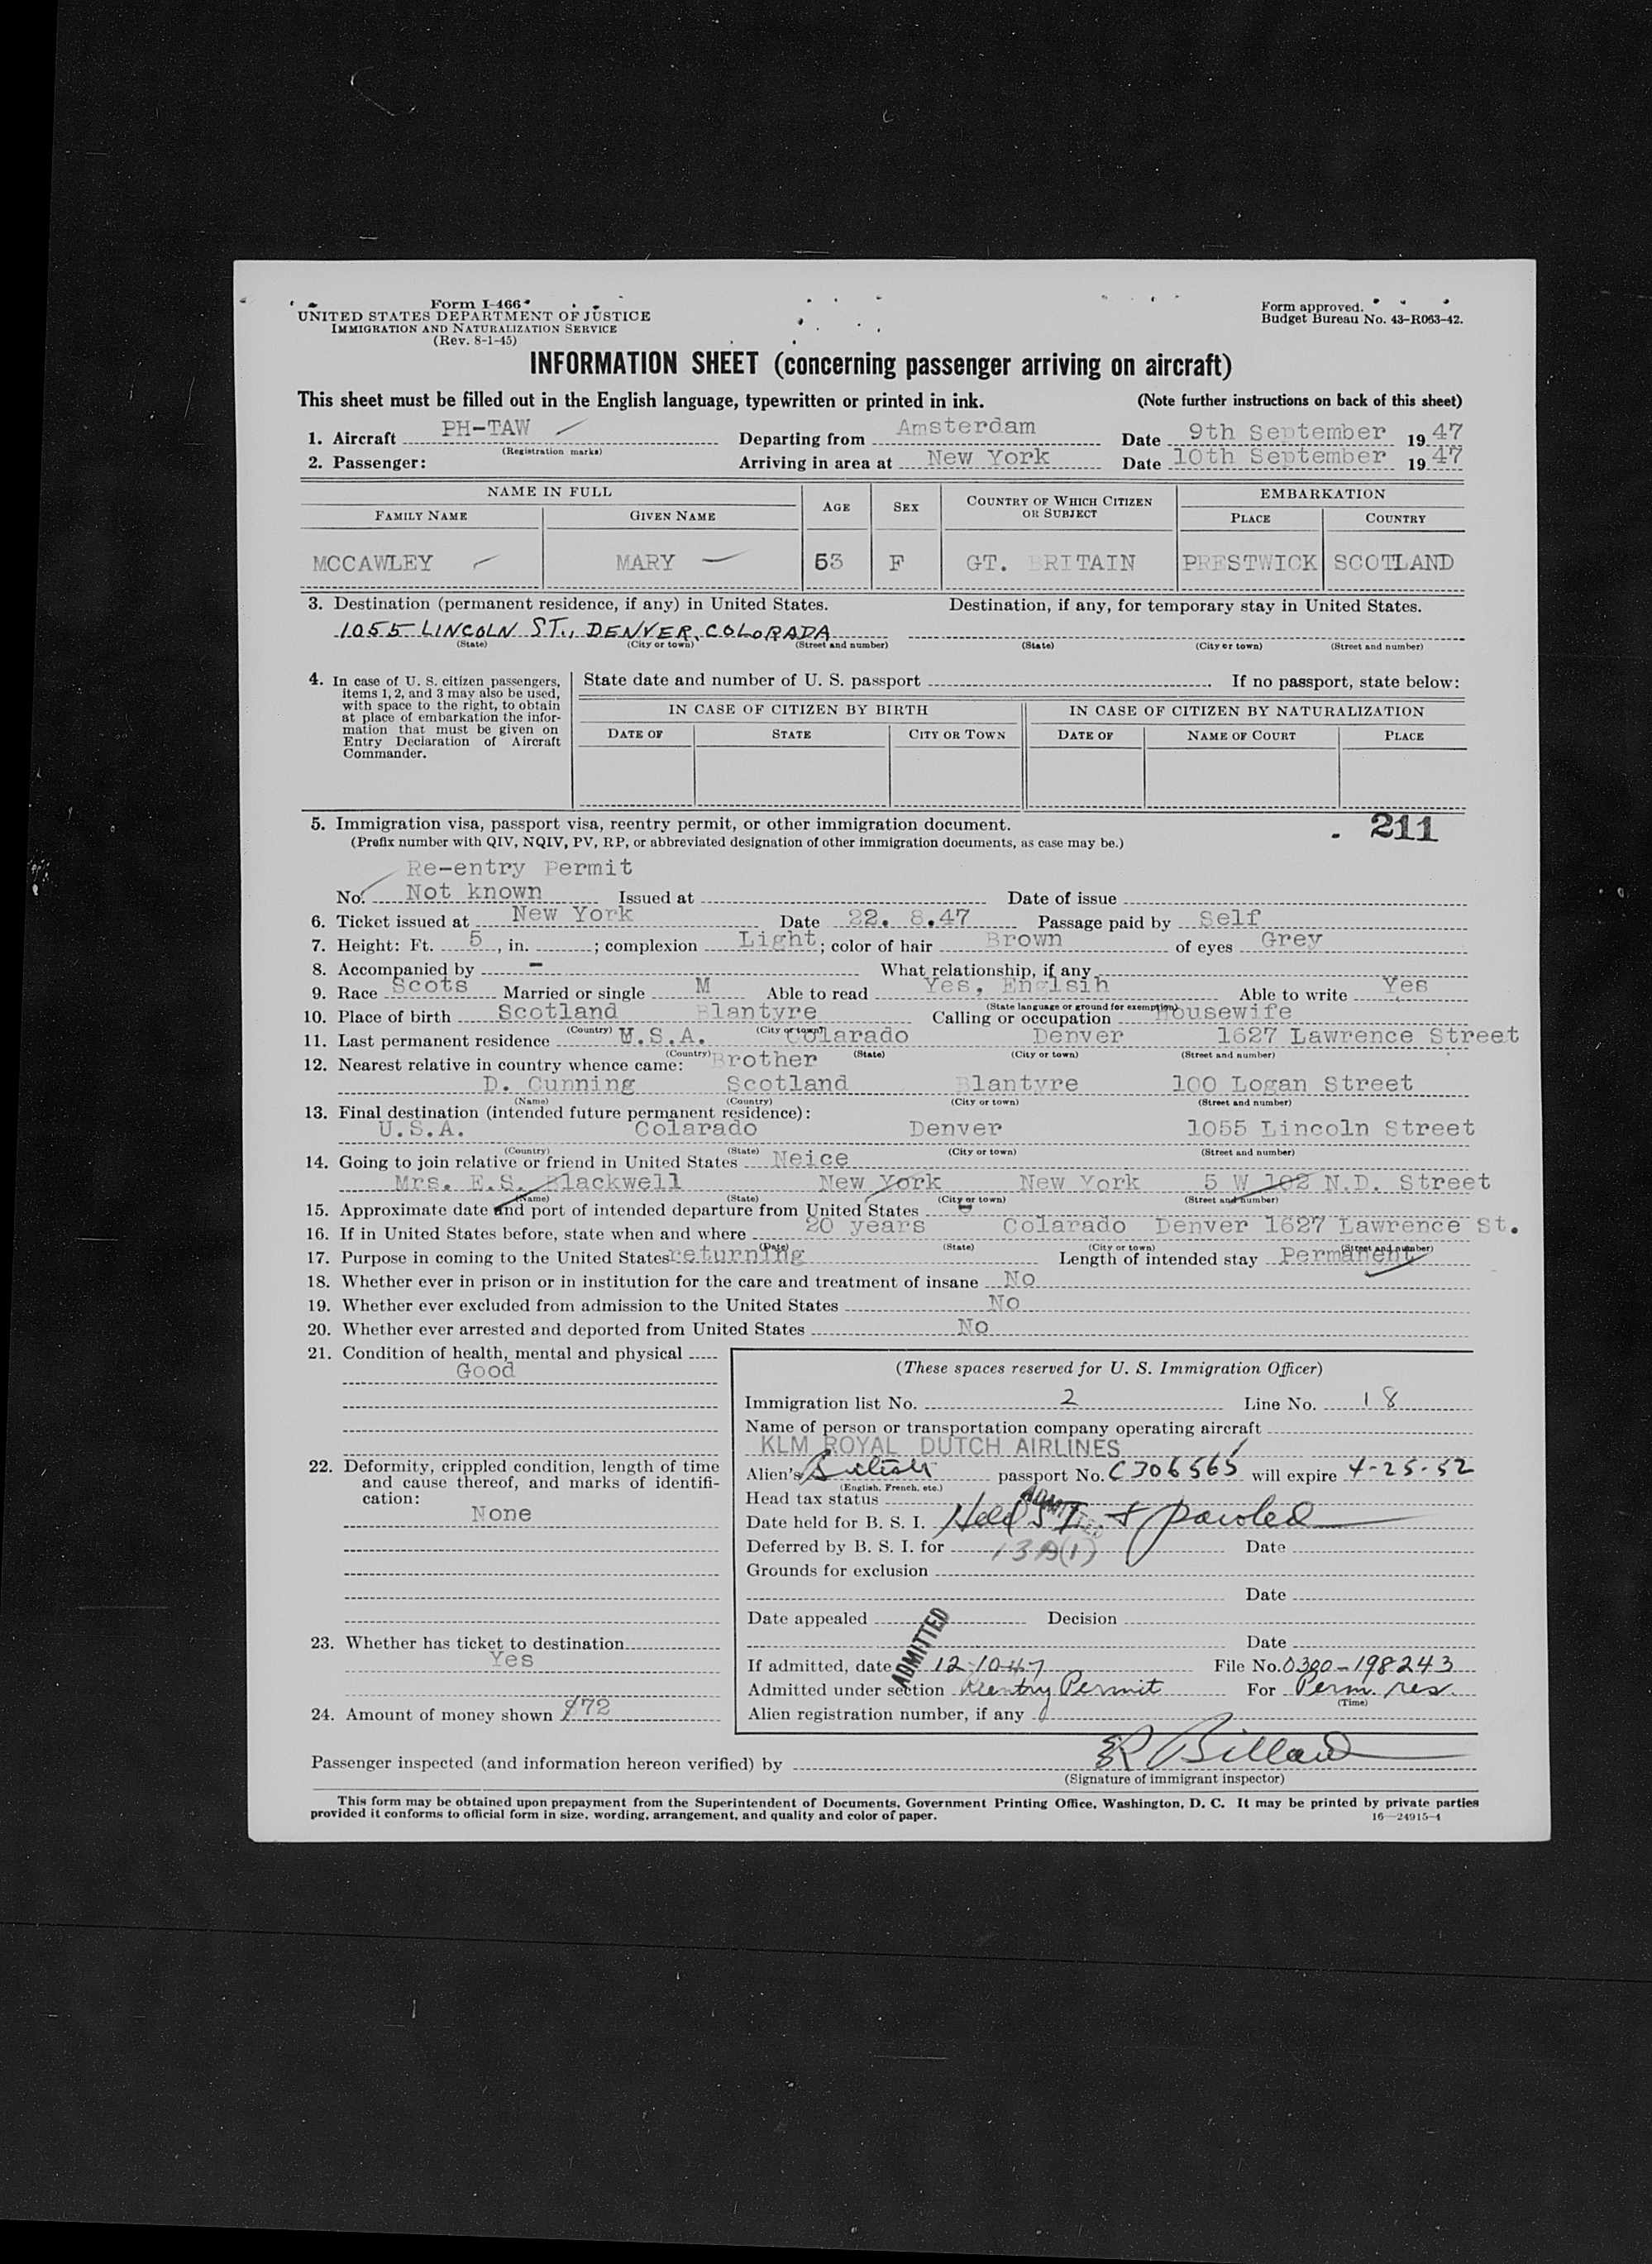 Form I-466
UNITED STATES DEPARTMENT OF JUSTICE
IMMIGRATION AND NATURALIZATION SERVICE
(Rev. 8-1-45)
Form approved.
Budget Bureau No. 43-R063-42.
INFORMATION SHEET (concerning passenger arriving on aircraft)
This sheet must be filled out in the English language, typewritten or printed in ink. (Note further instructions on back of this sheet)
1. Aircraft PH-TAW Departing from Amsterdam Date 9th September 1947
(Registration marks)
2. Passenger: Arriving in area at New York Date 10th September 1947
NAME IN FULL AGE SEX COUNTRY OF WHICH CITIZEN OR SUBJECT EMBARKATION
FAMILY NAME GIVEN NAME PLACE COUNTRY
MCCAWLEY MARY 53 F GT. BRITAIN PRESTWICK SCOTLAND
3. Destination (permanent residence, if any) in United States. Destination, if any, for temporary stay in United States.
1055 LINCOLN ST., DENVER, COLORADA
(State) (City or town) (Street and number) (State) (City or town) (Street and number)
4. In case of U. S. citizen passengers, items 1, 2, and 3 may also be used, with space to the right, to obtain at place of embarkation the information that must be given on Entry Declaration of Aircraft Commander.
State date and number of U. S. passport If no passport, state below:
IN CASE OF CITIZEN BY BIRTH IN CASE OF CITIZEN BY NATURALIZATION
DATE OF STATE CITY OR TOWN DATE OF NAME OF COURT PLACE
5. Immigration visa, passport visa, reentry permit, or other immigration document. 211
(Prefix number with QIV, NQIV, PV, RP, or abbreviated designation of other immigration documents, as case may be.)
Re-entry Permit
No. Not known Issued at Date of issue
6. Ticket issued at New York Date 22. 8.47 Passage paid by Self
7. Height: Ft. 5, in. ; complexion Light; color of hair Brown of eyes Grey
8. Accompanied by - What relationship, if any
9. Race Scots Married or single M Able to read Yes, Englsih Able to write Yes
(State language or ground for exemption)
10. Place of birth Scotland Blantyre Calling or occupation Housewife
(Country) (City or town)
11. Last permanent residence U.S.A. Colarado Denver 1627 Lawrence Street
(Country) (State) (City or town) (Street and number)
12. Nearest relative in country whence came: Brother
D. Cunning Scotland Blantyre 100 Logan Street
(Name) (Country) (City or town) (Street and number)
13. Final destination (intended future permanent residence):
U.S.A. Colarado Denver 1055 Lincoln Street
(Country) (State) (City or town) (Street and number)
14. Going to join relative or friend in United States Neice
Mrs. E.S. Blackwell New York New York 5 W 102 N.D. Street
(Name) (State) (City or town) (Street and number)
15. Approximate date and port of intended departure from United States -
16. If in United States before, state when and where 20 years Colarado Denver 1627 Lawrence St.
(Date) (State) (City or town) (Street and number)
17. Purpose in coming to the United States returning Length of intended stay Permanent
18. Whether ever in prison or in institution for the care and treatment of insane No
19. Whether ever excluded from admission to the United States No
20. Whether ever arrested and deported from United States No
21. Condition of health, mental and physical
Good
22. Deformity, crippled condition, length of time and cause thereof, and marks of identification:
None
23. Whether has ticket to destination
Yes
24. Amount of money shown $72
(These spaces reserved for U. S. Immigration Officer)
Immigration list No. 2 Line No. 18
Name of person or transportation company operating aircraft
KLM ROYAL DUTCH AIRLINES
Alien's British passport No. C306565 will expire 4-25-52
(English, French, etc.)
Head tax status
ADMITTED
Date held for B. S. I. Held S I. & paroled
Deferred by B. S. I. for 13A(1) Date
Grounds for exclusion
Date
Date appealed Decision
Date
ADMITTED
If admitted, date 12-10-47 File No. 0300-198243
Admitted under section Reentry Permit For Perm. res.
(Time)
Alien registration number, if any
Passenger inspected (and information hereon verified) by ER Billard
(Signature of immigrant inspector)
This form may be obtained upon prepayment from the Superintendent of Documents, Government Printing Office, Washington, D. C. It may be printed by private parties
provided it conforms to official form in size, wording, arrangement, and quality and color of paper. 16—24915-1